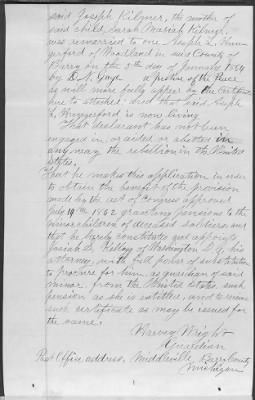 said Joseph Kilmer, the mother of
said child, Sarah Mariah Kilmer,
was remarried to one Joseph L. Hun-
gerford of Woodland in said County of
Barry on the 5th day of January 1864
by D. N. a Justice of the Peace
as will more fully appear by the Certificate
hereto attached. And that said Joseph
L. Hungerford is now living
That declarant has not been
engaged in, or aided or abetted in
any way the rebellion in the United
States.
That he makes this application in order
to obtain the benefit of the provision
made by the act of Congress approved
July 14th 1862 granting pensions to the
minor children of deceased soldiers and
that he hereby constitutes and appoints
Josiah F. Kellogg of Washington D.C., his
attorney, with full power of substitution
to procure for him, as guardian of said
minor, from the United States, such
pension as she is entitled, and to receive
such certificate as may be issued
for the same.
Harvey Wright
Guardian
Post Office address, Middleville, Barry County,
Michigan